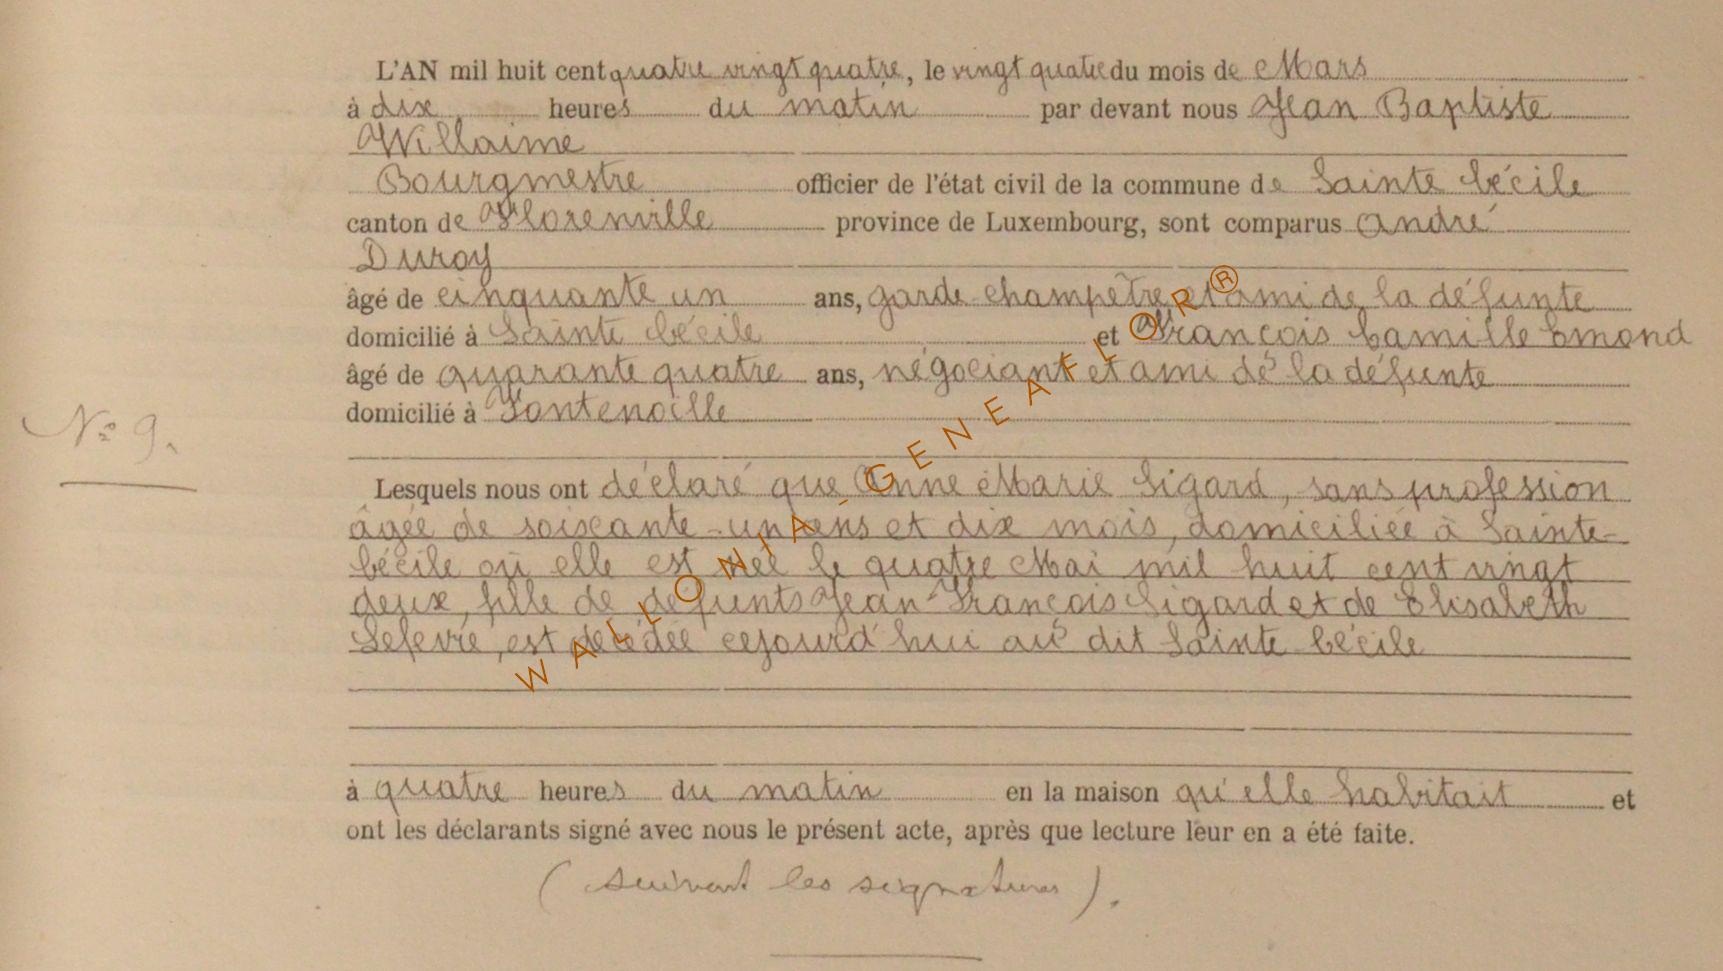 L'AN mil huit cent quatre vingt quatre, le vingt quatre du mois de Mars
à dix heures du matin par devant nous Jean Baptiste
Willaime
Bourgmestre officier de l'état civil de la commune de Sainte Cécile
canton de Florenville province de Luxembourg, sont comparus André
Duroy
âgé de cinquante un ans, garde-champêtre et ami de la défunte
domicilié à Sainte Cécile et François Camille Emond
âgé de quarante quatre ans, négociant et ami de la défunte
domicilié à Fontenoille
N° 9.
Lesquels nous ont déclaré que Anne Marie Sigard, sans profession
âgée de soixante-un ans et dix mois, domiciliée à Sainte-
Cécile où elle est née le quatre Mai mil huit cent vingt
deux, fille de défunts Jean-François Sigard et de Elisabeth
Lefevre, est décédée cejourd'hui au dit Sainte Cécile
à quatre heures du matin en la maison qu'elle habitait et
ont les déclarants signé avec nous le présent acte, après que lecture leur en a été faite.
(suivent les signatures).
WALLONIA-GENEAFLOR®